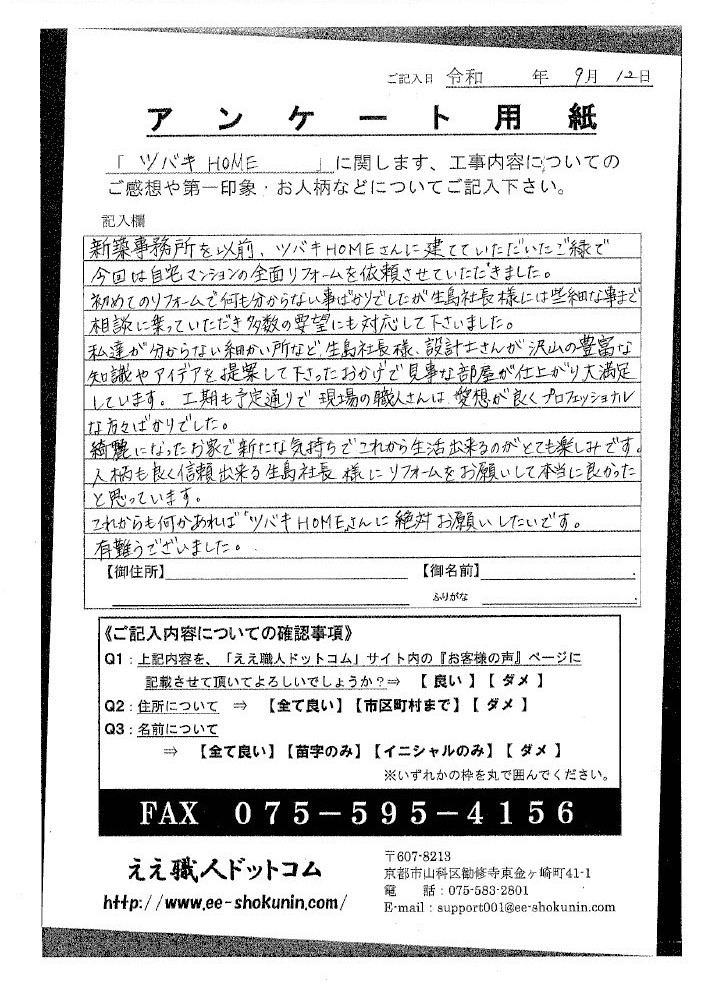 ご記入日 令和 年 9月 12日
アンケート用紙
「 ツバキHOME 」に関します、工事内容についての
ご感想や第一印象・お人柄などについてご記入下さい。
記入欄
新築事務所を以前、ツバキHOMEさんに建てていただいたご縁で
今回は自宅マンションの全面リフォームを依頼させていただきました。
初めてのリフォームで何も分からない事ばかりでしたが生島社長様には些細な事まで
相談に乗っていただき多数の要望にも対応して下さいました。
私達が分からない細かい所など、生島社長様、設計士さんが沢山の豊富な
知識やアイデアを提案して下さったおかげで見事な部屋が仕上がり大満足
しています。工期も予定通りで現場の職人さんは愛想が良くプロフェッショナル
な方々ばかりでした。
綺麗になったお家で新たな気持ちでこれから生活出来るのがとても楽しみです。
人柄も良く信頼出来る生島社長様にリフォームをお願いして本当に良かった
と思っています。
これからも何かあれば「ツバキHOME」さんに絶対お願いしたいです。
有難うございました。
【御住所】 【御名前】
ふりがな
《ご記入内容についての確認事項》
Q1：上記内容を、「ええ職人ドットコム」サイト内の『お客様の声』ページに
記載させて頂いてよろしいでしょうか？⇒ 【 良い 】【 ダメ 】
Q2：住所について ⇒ 【全て良い】【市区町村まで】【 ダメ 】
Q3：名前について
⇒ 【全て良い】【苗字のみ】【イニシャルのみ】【 ダメ 】
※いずれかの枠を丸で囲んでください。
FAX 075－595－4156
ええ職人ドットコム
http://www.ee-shokunin.com/
〒607-8213
京都市山科区勧修寺東金ヶ崎町41-1
電 話：075-583-2801
E-mail：support001@ee-shokunin.com